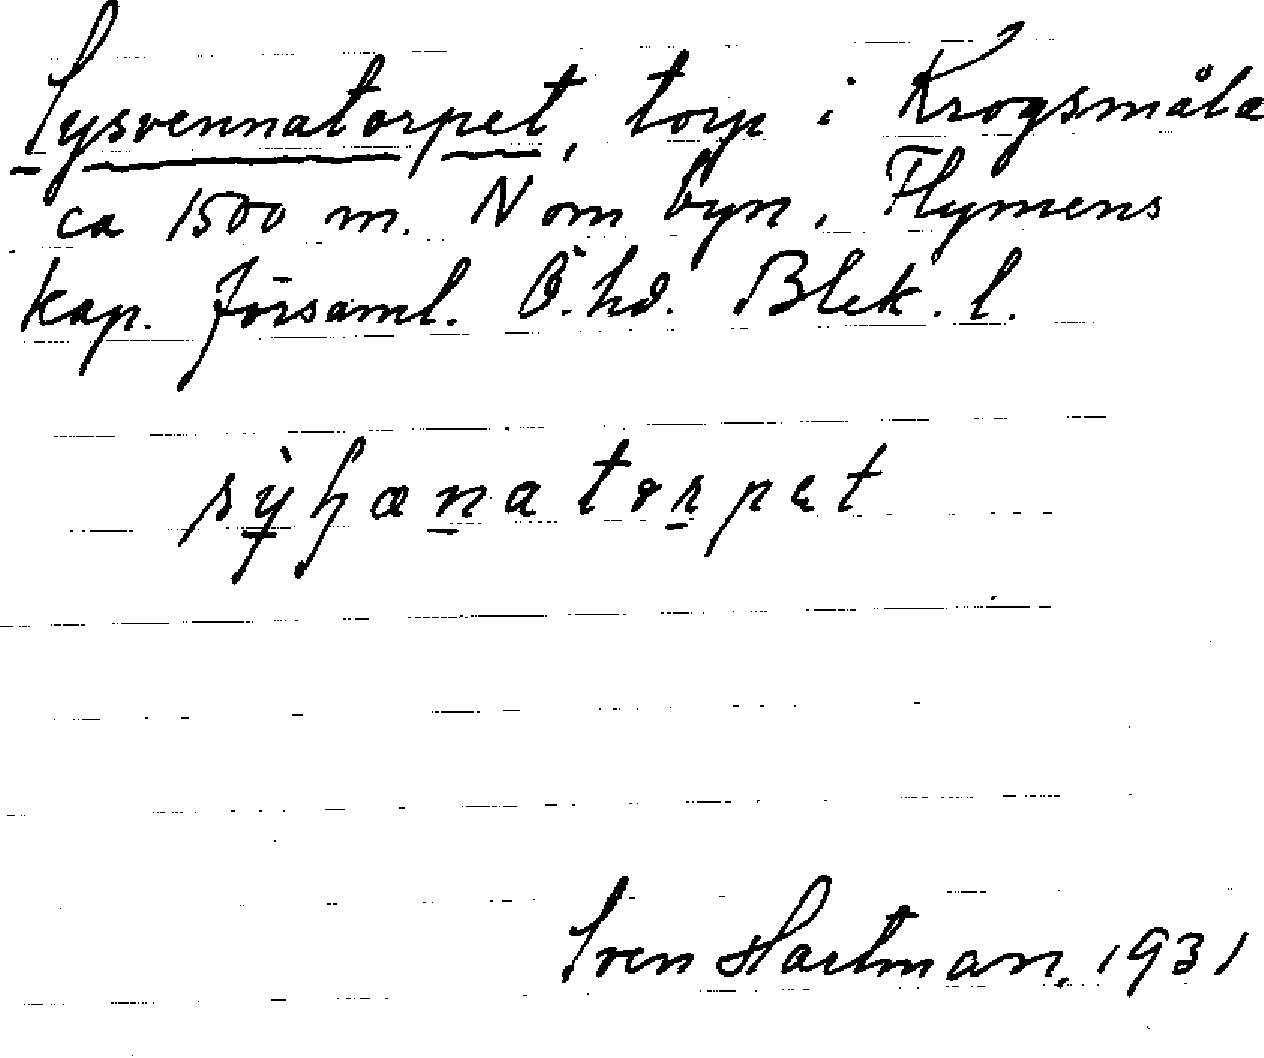 Sysvennatorpet, torp i Krogsmåla
ca 1500 m. N om byn, Flymens
kap. församl. Ö. hd. Blek. l.
Sven Hartman, 1931